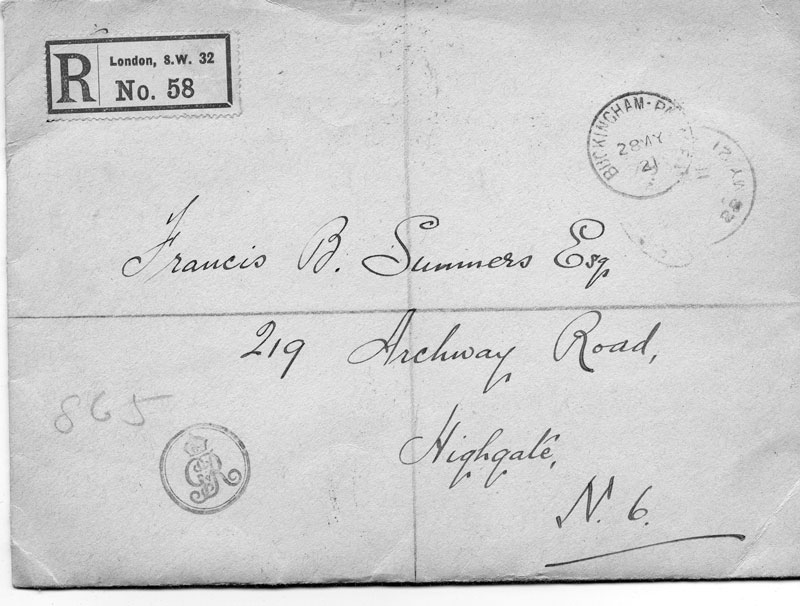 R
London, S.W. 32
No. 58
BUCKINGHAM-
28 MY
21
Francis B. Summers Esq
219 Archway Road,
Highgate,
N. 6.
865
GR